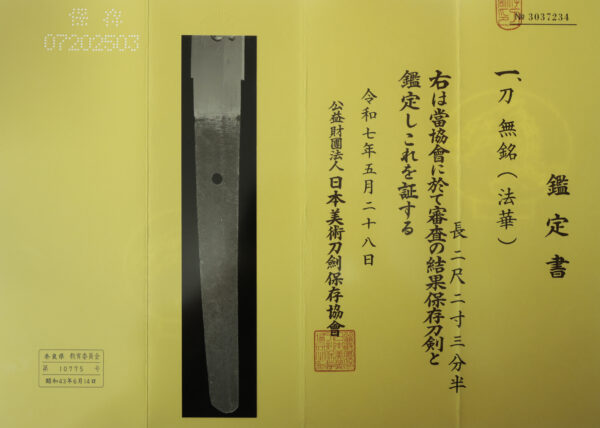 № 3037234
鑑定書
一、刀 無銘(法華)
長二尺二寸三分半
右は當協會に於て審査の結果保存刀剣と
鑑定しこれを証する
令和七年五月二十八日
公益財團法人 日本美術刀劍保存協會
保存
07202503
奈良県 教育委員会
第 10775 号
昭和43年6月14日